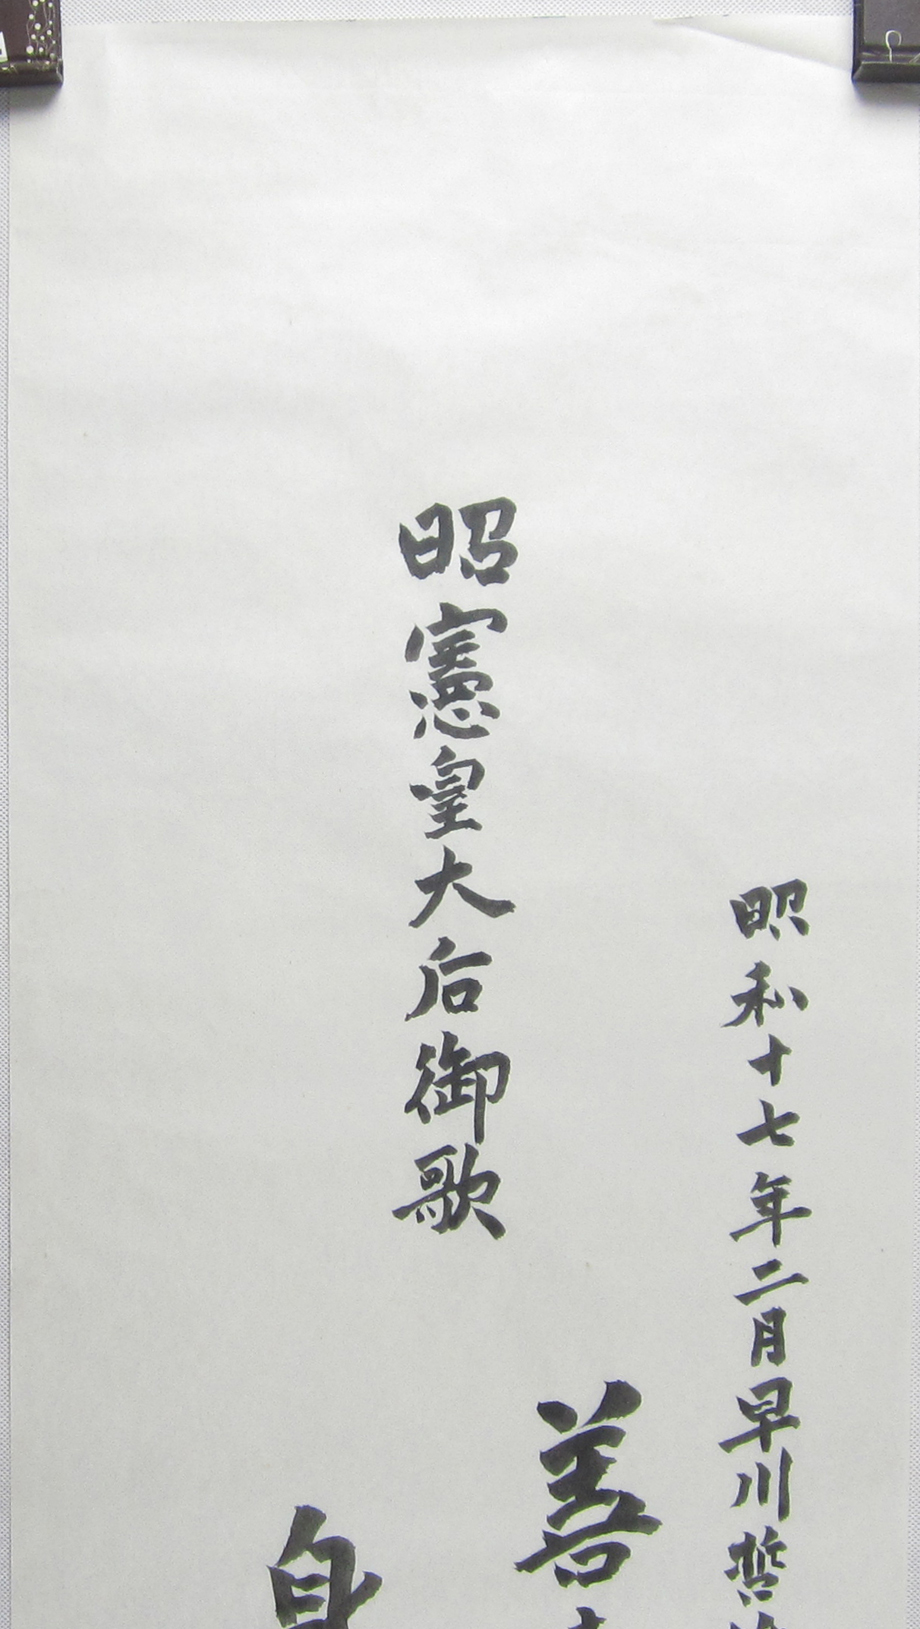 昭和十七年二月早川哲
善
昭憲皇大后御歌
身